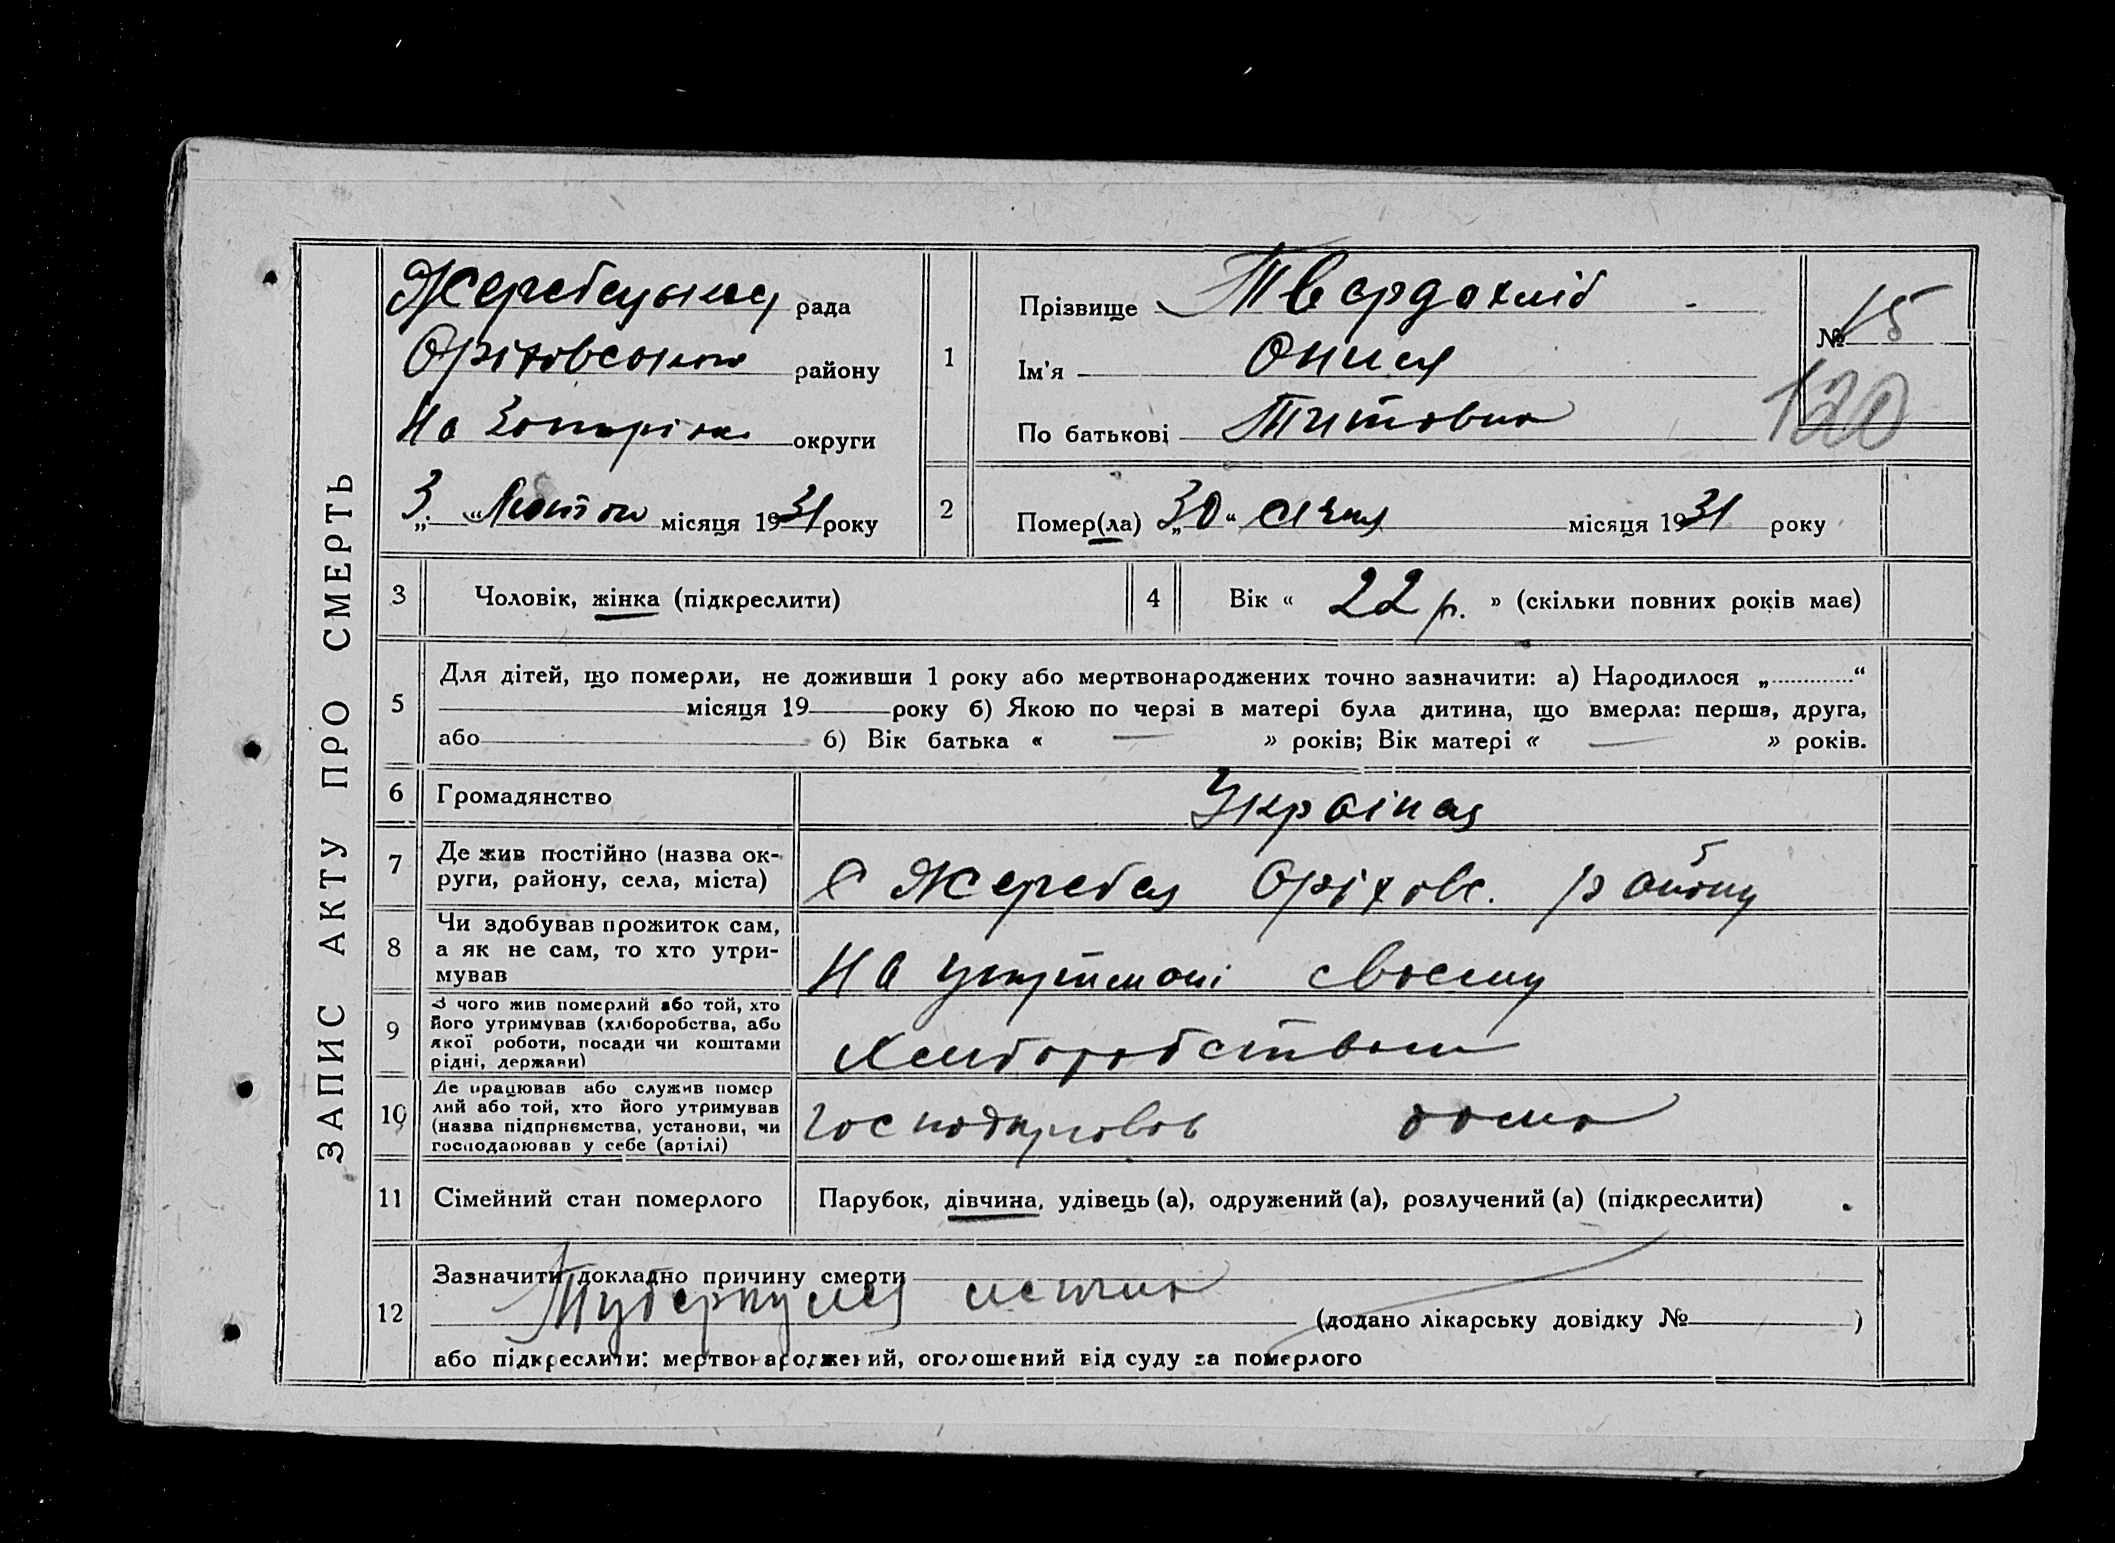 ЗАПИС АКТУ ПРО СМЕРТЬ
Жеребецька рада
Оріховського району
На Запоріжж округи
„3“ Лютого місяця 1931 року
1
Прізвище Твердохліб
Ім'я Онися
По батькові Титовна
№ 15
120
2
Помер(ла) „30“ січня місяця 1931 року
3 Чоловік, жінка (підкреслити)
4 Вік « 22 р. » (скільки повних років має)
5 Для дітей, що померли, не доживши 1 року або мертвонароджених точно зазначити: а) Народилося „ “
місяця 19 року б) Якою по черзі в матері була дитина, що вмерла: перша, друга,
або б) Вік батька « — » років; Вік матері « — » років.
6 Громадянство Україна
7 Де жив постійно (назва ок-
руги, району, села, міста)
С Жеребец Оріховс. району
8 Чи здобував прожиток сам,
а як не сам, то хто утри-
мував
На своему
9 З чого жив померлий або той, хто
його утримував (хліборобства, або
якої роботи, посади чи коштами
рідні, держави)
Хлиборобством
10 Де працював або служив помер
лий або той, хто його утримував
(назва підприємства, установи, чи
господарював у себе (артілі)
господарював дома
11 Сімейний стан померлого
Парубок, дівчина, удівець (а), одружений (а), розлучений (а) (підкреслити)
12 Зазначити докладно причину смерти
Туберкулез легких
(додано лікарську довідку № )
або підкреслити: мертвонароджений, оголошений від суду за померлого